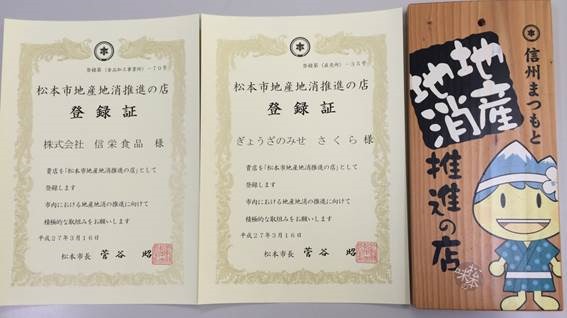 登録第(食品加工事業所)-70号
松本市地産地消推進の店
登録証
株式会社 信栄食品 様
貴店を「松本市地産地消推進の店」として
登録します
市内における地産地消の推進に向けて
積極的な取組みをお願いします
平成27年3月16日
松本市長 菅谷 昭
登録第(直売所)-35号
松本市地産地消推進の店
登録証
ぎょうざのみせ さくら 様
貴店を「松本市地産地消推進の店」として
登録します
市内における地産地消の推進に向けて
積極的な取組みをお願いします
平成27年3月16日
松本市長 菅谷 昭
信州まつもと
地産
地消
推進の店